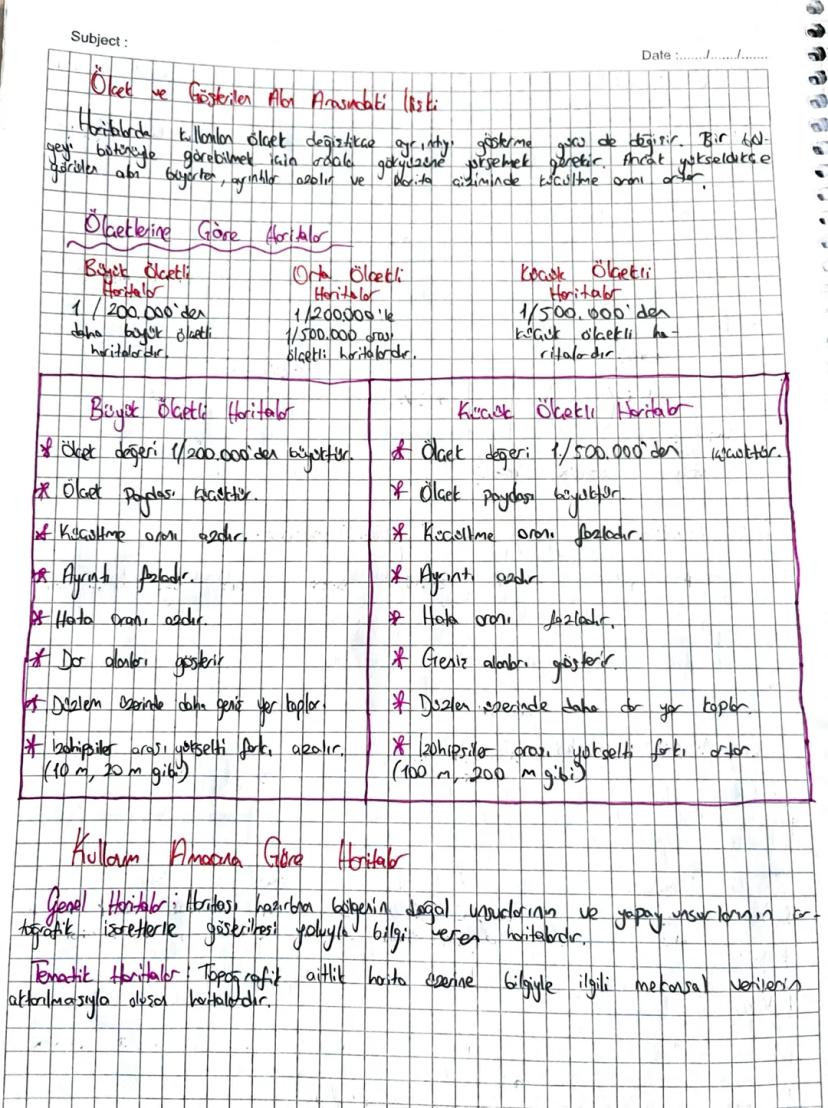 Subject :
Date :......./......./.......
Ölçek ve Gösterilen Alan Arasındaki İlişki
Haritalarda kullanılan ölçek değiştikçe ayrıntıyı gösterme gücü de değişir. Bir böl-
geyi bütünüyle görebilmek için orada gökyüzüne yükselmek gerekir. Ancak yükseldikçe
görülen alan büyürken, ayrıntılar azalır ve harita çiziminde küçültme oranı artar.
Ölçeklerine Göre Haritalar
Büyük Ölçekli
Haritalar
1 / 200.000'den
daha büyük ölçekli
haritalardır.
Orta Ölçekli
Haritalar
1/200000'le
1/500.000 arası
ölçekli haritalardır.
Küçük Ölçekli
Haritalar
1/500.000'den
küçük ölçekli ha-
ritalardır.
Büyük Ölçekli Haritalar
* Ölçek değeri 1/200.000'den büyüktür.
* Ölçek Paydası küçüktür.
* Küçültme oranı azdır.
* Ayrıntı fazladır.
* Hata oranı azdır.
* Dar alanları gösterir
* Düzlem üzerinde daha geniş yer kaplar.
* İzohipsiler arası yükselti farkı azalır.
(10 m, 20 m gibi)
Küçük Ölçekli Haritalar
* Ölçek değeri 1/500.000'den küçüktür.
* Ölçek paydası büyüktür.
* Küçültme oranı fazladır.
* Ayrıntı azdır
* Hata oranı fazladır.
* Geniş alanları gösterir.
* Düzlem üzerinde daha dar yer kaplar.
* İzohipsiler arası yükselti farkı artar.
(100 m, 200 m gibi)
Kullanım Amacına Göre Haritalar
Genel Haritalar: Haritası hazırlanan bölgenin doğal unsurlarının ve yapay unsurlarının kar-
tografik işaretlerle gösterilmesi yoluyla bilgi veren haritalardır.
Tematik Haritalar: Topografik altlık harita üzerine bilgiyle ilgili mekansal verilerin
aktarılmasıyla oluşan haritalardır.